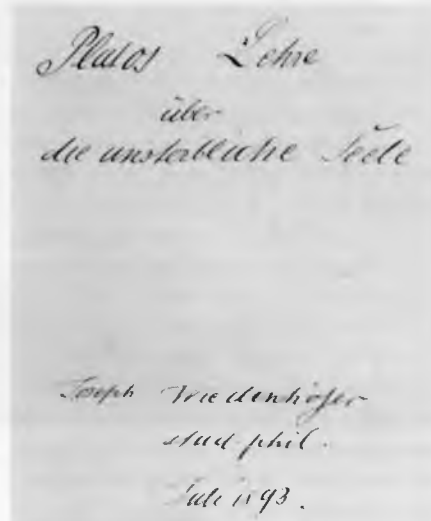 Platos Lehre
über
die unsterbliche Seele
Joseph Wiedenhöfer
stud. phil.
Juli 1893.